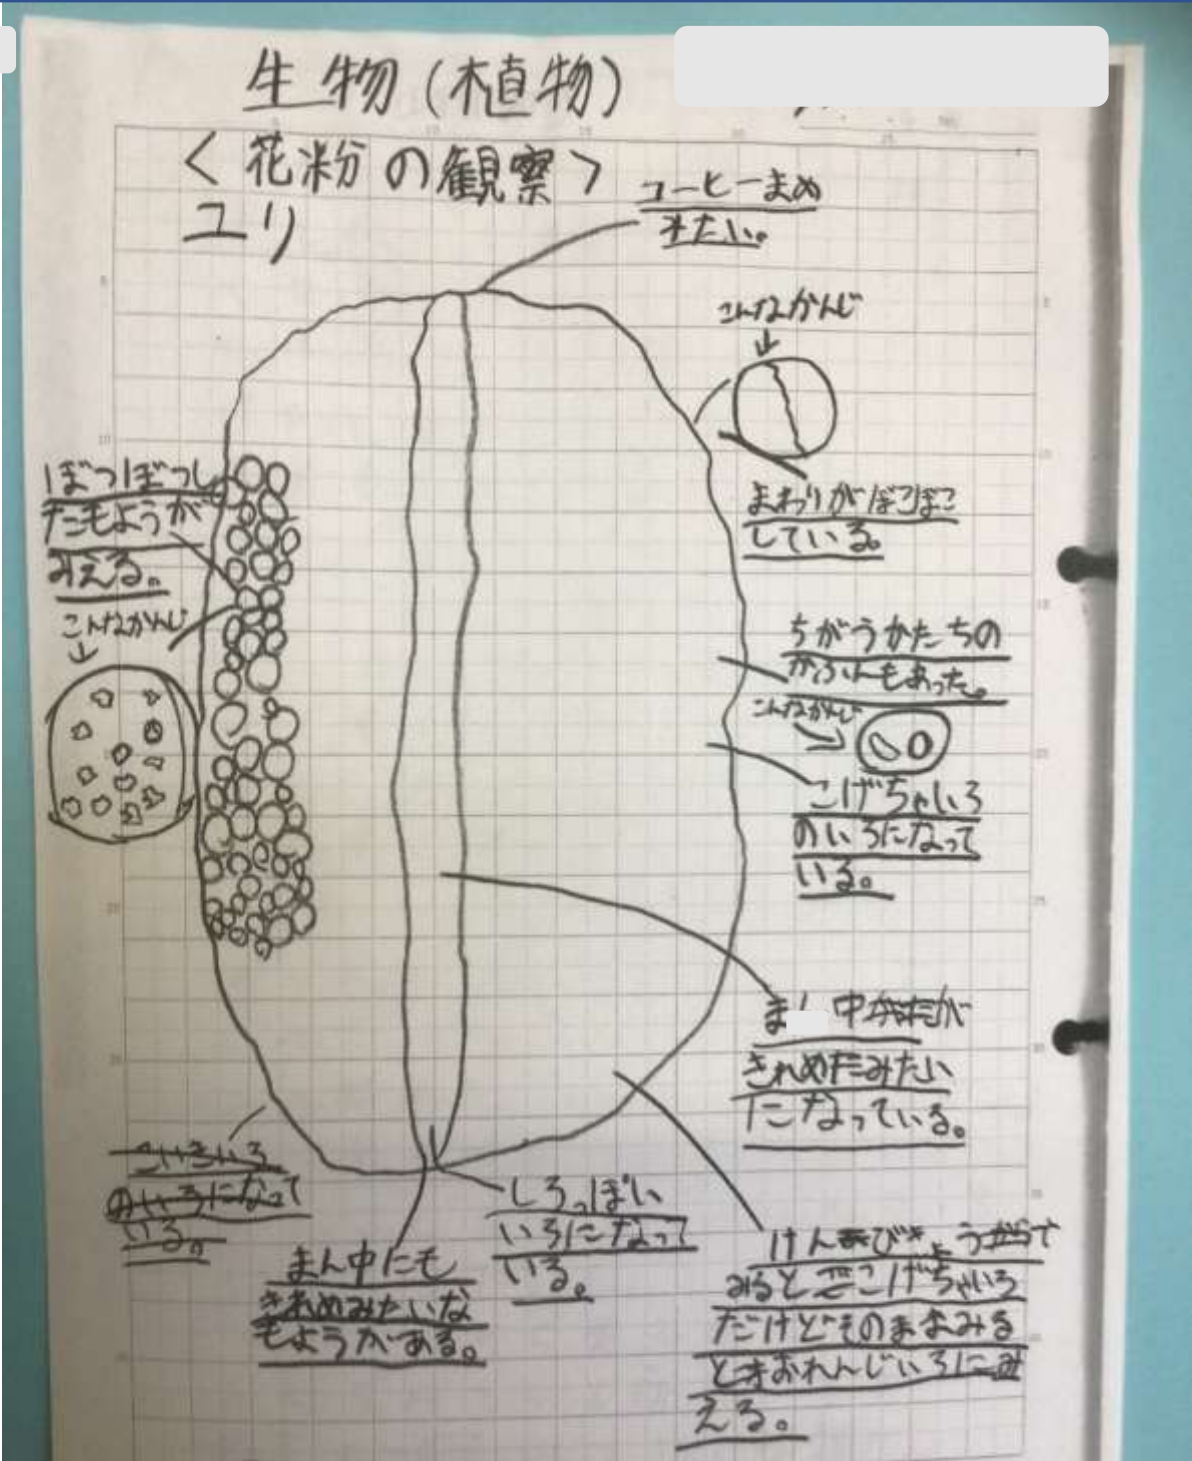 生物(植物)
<花粉の観察>
ユリ
コーヒーまめ
みたい。
こんなかんじ
まわりがぼこぼこ
している。
ぼつぼつし
たもようが
みえる。
こんなかんじ
ちがうかたちの
かふんもあった。
こんなかんじ
こげちゃいろ
のいろになって
いる。
ま 中が
きれめだみたい
になっている。
こいきいろ
のいろになって
いる。
しろっぽい
いろになって
いる。
まん中にも
きれめみたいな
もようがある。
けんびきょうで
みるとこげちゃいろ
だけどそのままみる
とおれんじいろにみ
える。